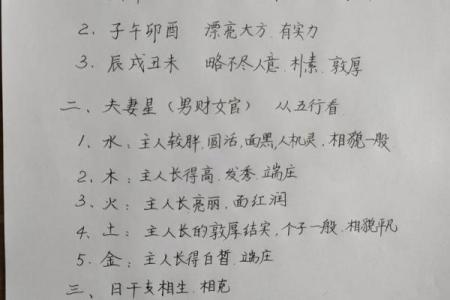 2. 子午卯酉 漂亮大方、有实力
3. 辰戌丑未 略不尽人意、朴素、敦厚
二、夫妻星（男财女官） 从五行看
1、水：主人较胖、圆活、面黑、人机灵、相貌一般
2、木：主人长得高、发秀、端庄
3、火：主人长亮丽、面红润
4、土：主人长的敦厚结实、个子一般、相貌平凡
5、金：主人长得白皙、端庄
三、日干支相生、相克